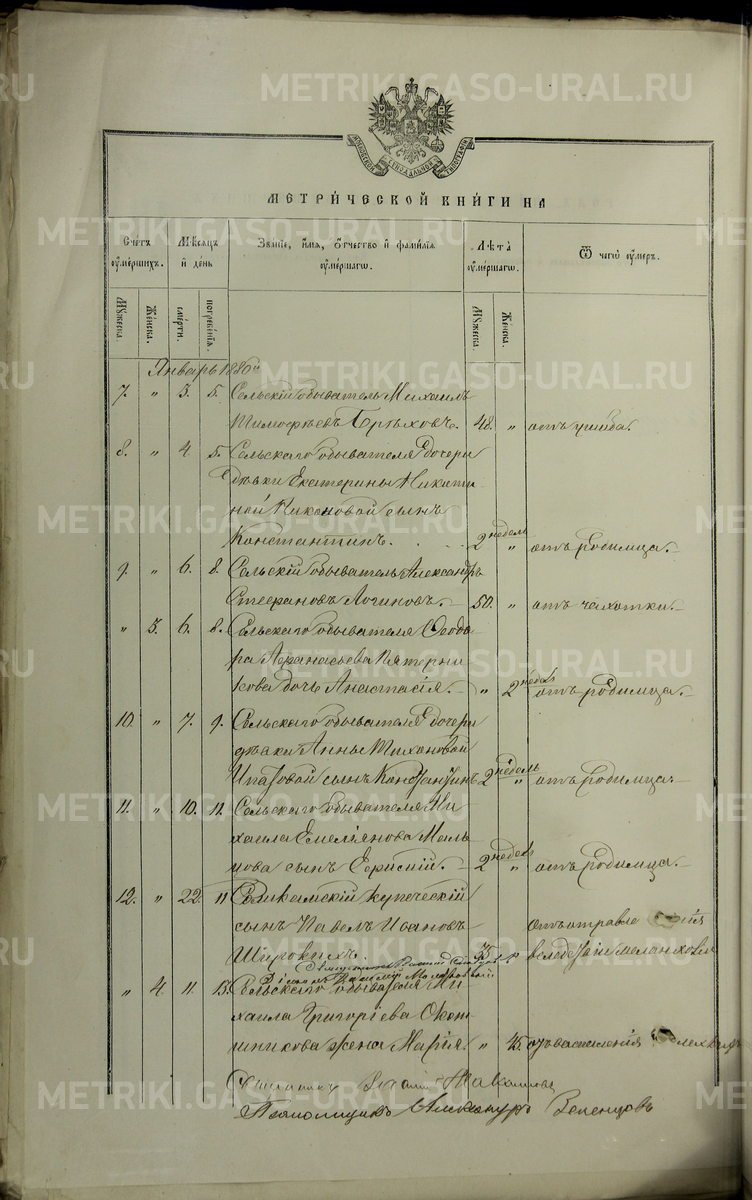 METRIKI.GASO-URAL.RU
МЕТРИ́ЧЕСКОЙ КНИ́ГИ НА
Сче́тъ ᲂу҆ме́ршихъ.
Мѣ́сяцъ и҆ де́нь
Зва́нїе, и҆́мя, ѻ҆́тчество и҆ фамилїя ᲂу҆ме́ршагѡ.
Лѣ́та ᲂу҆ме́ршагѡ.
Ѿ чегѡ̀ ᲂу҆́меръ.
Мꙋ́жеска.
Же́нска.
сме́рти.
погребе́нїя.
Мꙋ́жеска.
Же́нска.
Январь 1880
7. " 3. 5. Сельскій обыватель Михаилъ
Тимофѣевъ 48. " отъ ушиба.
8. " 4 5. Сельскаго обывателя дочери
дѣвки Екатерины Никити
ной Никоновой сынъ
Константинъ. 2 недѣль " отъ родимца.
9. " 6. 8. Сельскій обыватель Александръ
Стефановъ Логиновъ. 50. " отъ чахотки.
" 3. 6. 8. Сельскаго обывателя Ѳеодо
ра Афанасьева Пятерни
кова дочь Анастасія. " 2 недѣль отъ родимца.
10. " 7. 9. Сельскаго обывателя дочери
дѣвки Анны Тихоновой
Ипатовой сынъ Константинъ 2 недѣль " отъ родимца
11. " 10. 11. Сельскаго обывателя Ми
хаила Емельянова Маль
цова сынъ 2 недѣль " отъ родимца.
12. " 22. 11 Соликамскій купеческій
сынъ Павелъ Ивановъ
Широкихъ.
" 4. 11. 13. Сельскаго обывателя Ми
хаила Григоріева
жена Марія. " 45. отъ воспаленія
Священникъ
Псаломщикъ Александръ Зеленцовъ